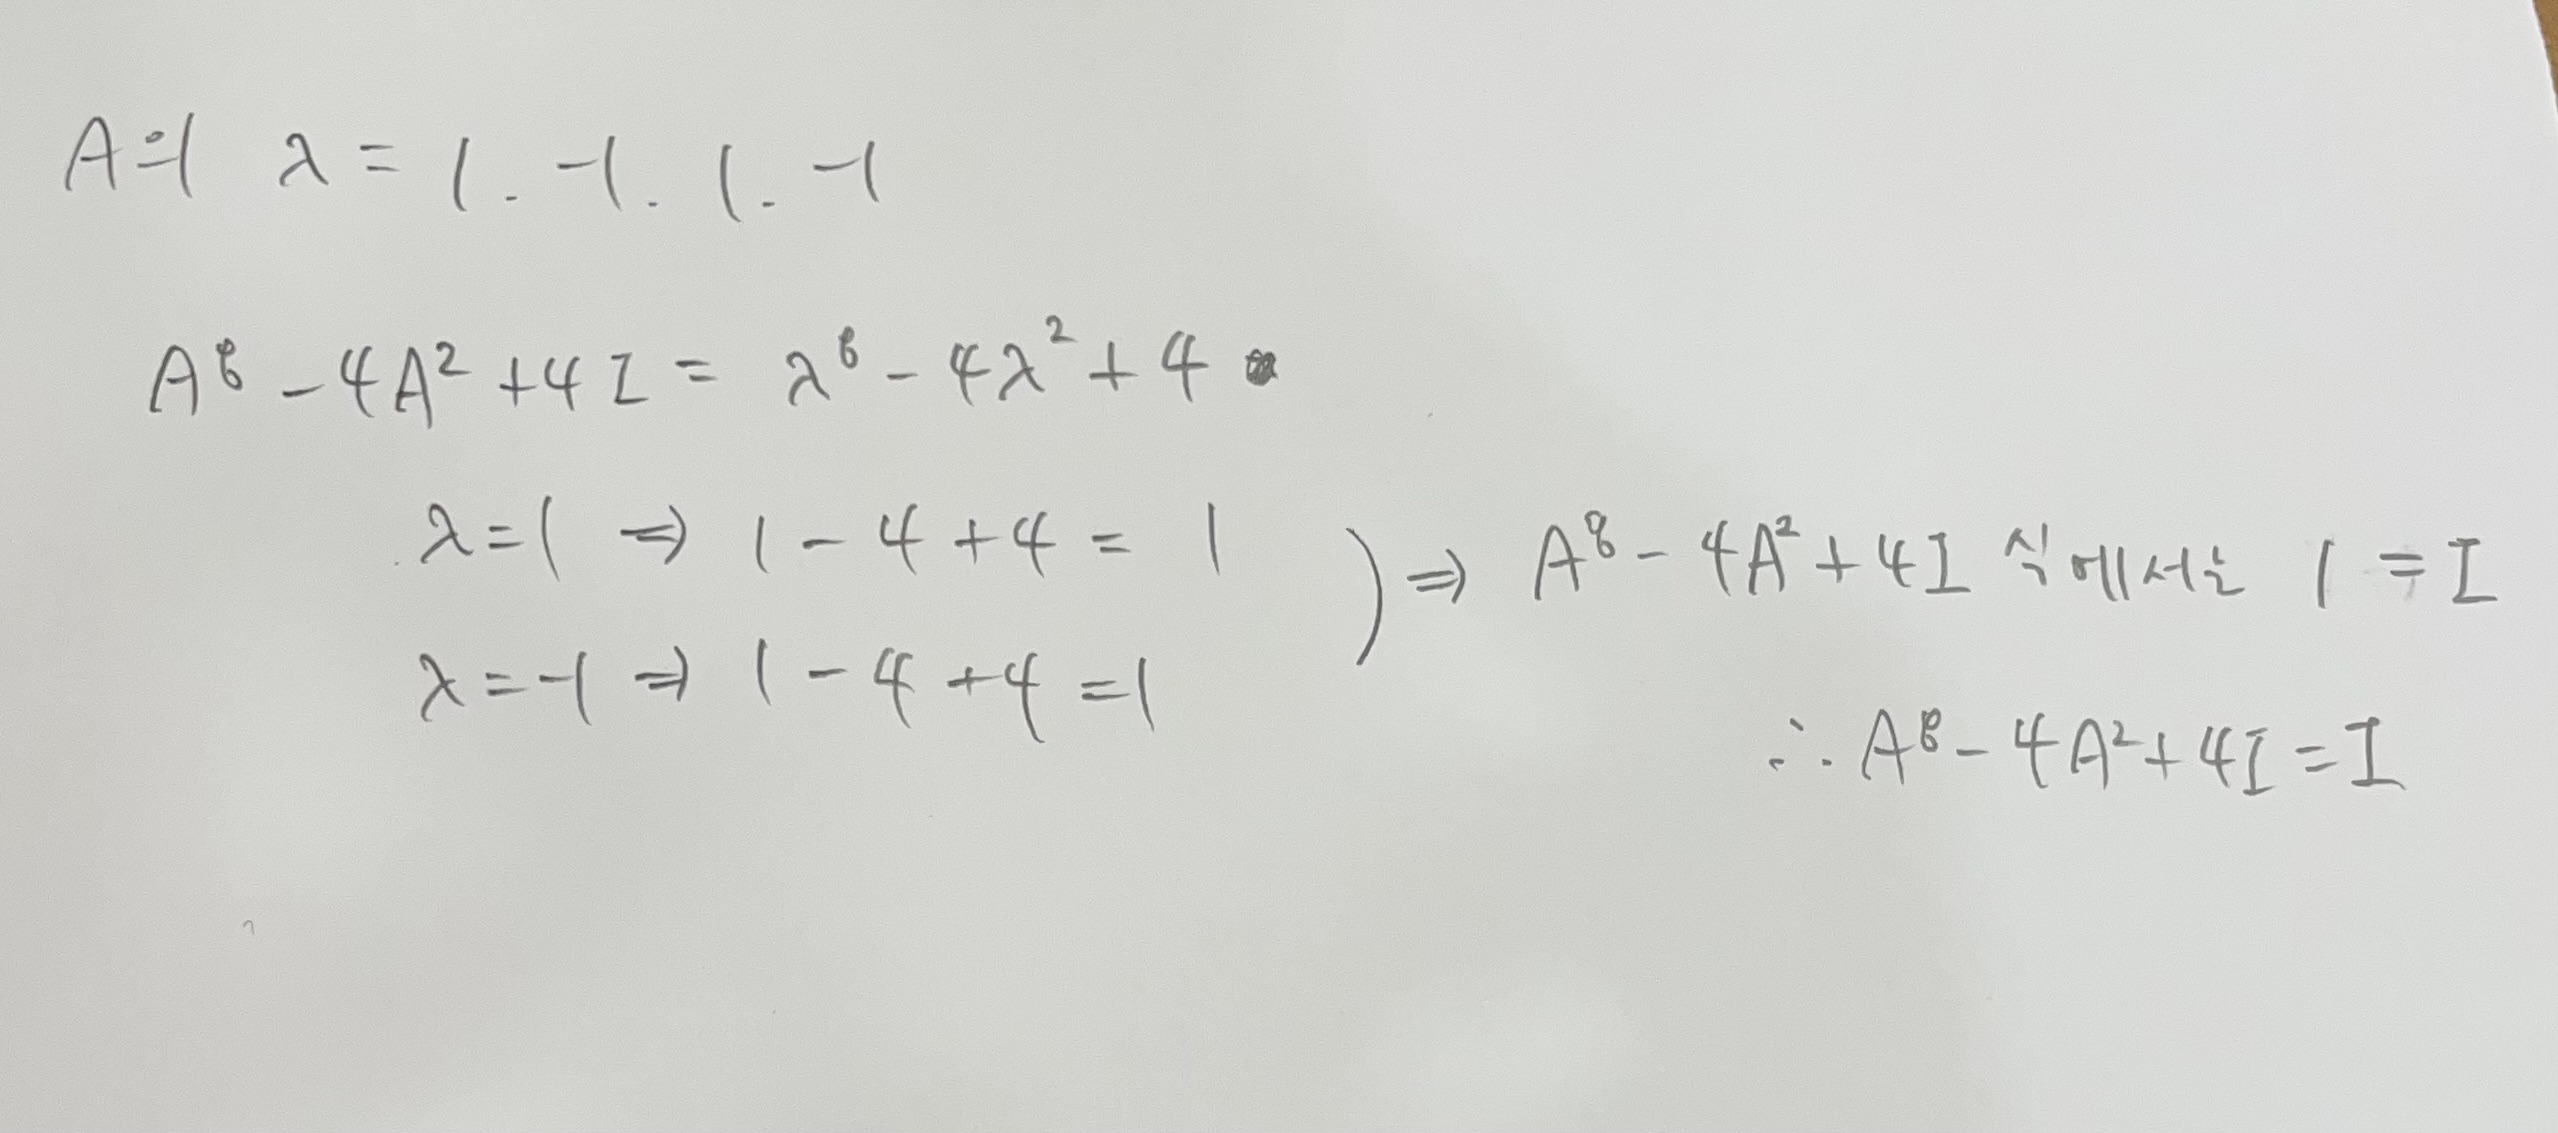 A의 λ = 1. -1. 1. -1
A⁸ - 4A² + 4I = λ⁸ - 4λ² + 4
λ=1 ⇒ 1 - 4 + 4 = 1
λ=-1 ⇒ 1 - 4 + 4 = 1
) ⇒ A⁸ - 4A² + 4I 식에서는 1 = I
∴ A⁸ - 4A² + 4I = I